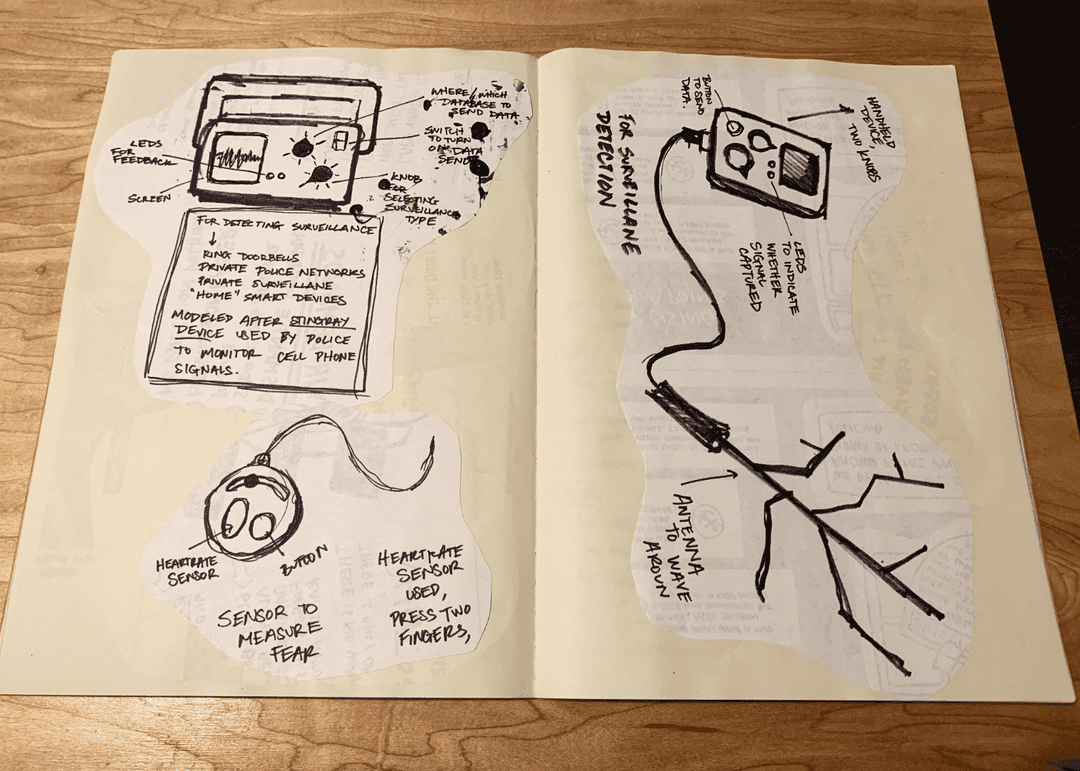 WHERE/WHICH
DATABASE TO
SEND DATA
SWITCH
TO TURN
ON DATA
SEND
KNOB
FOR
SELECTING
SURVEILLANCE
TYPE
LEDS
FOR
FEEDBACK
SCREEN
FOR DETECTING SURVEILLANCE
RING DOORBELLS
PRIVATE POLICE NETWORKS
PRIVATE SURVEILLANE
"HOME" SMART DEVICES
MODELED AFTER STINGRAY
DEVICE USED BY POLICE
TO MONITOR CELL PHONE
SIGNALS.
HEARTRATE
SENSOR
BUTTON
SENSOR TO
MEASURE
FEAR
HEARTRATE
SENSOR
USED,
PRESS TWO
FINGERS,
BUTTON
TO SEND
DATA.
HANDHELD
DEVICE,
TWO KNOBS
FOR SURVEILLANE
DETECTION
LEDS
TO INDICATE
WHETHER
SIGNAL
CAPTURED
ANTENNA
TO WAVE
AROUN